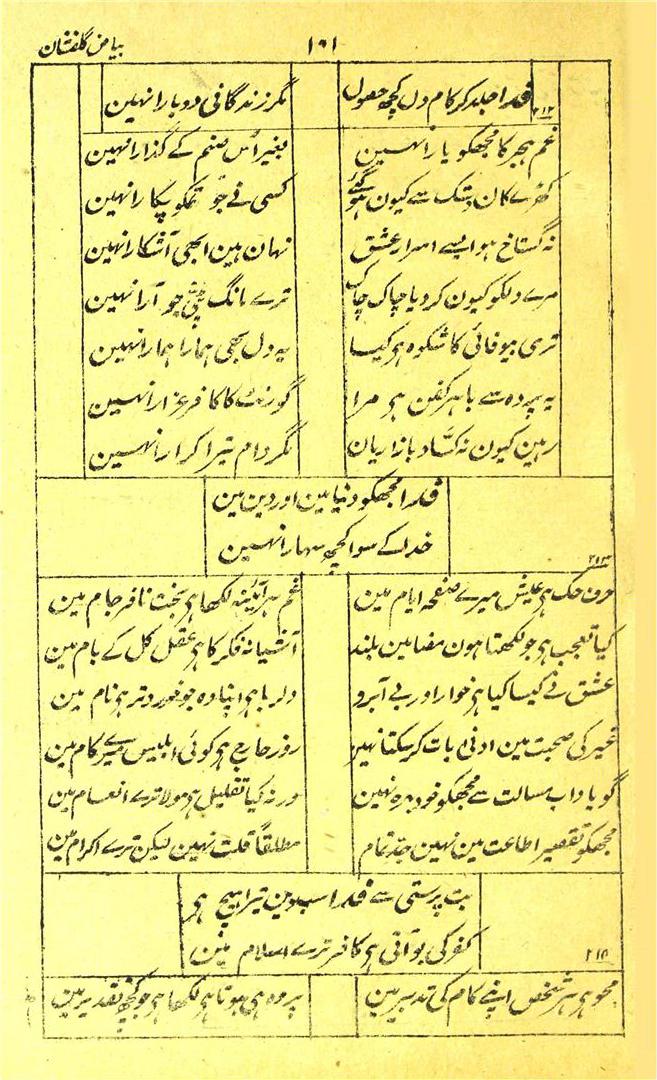 بیاض گلفشان
۱۶۱
۲۱۲
فدا جلد کر کام دل کچھ حصول مگر زندگانی دوبارا نہین
غم ہجر کا مجھکو یارا نہین بغیر اُس صنم کے گذارا نہین
کھڑے کان رشک سے کیون ہو گئے کسی نے جو تمکو پکارا نہین
نہ گستاخ ہو ایسے اسرار عشق نہان ہین ابھی آشکارا نہین
مرے دلکو کیون کر دیا چاک چاک ترے مانگ پٹی جو آرا نہین
تری بیوفائی کا شکوہ ہی کیا یہ دل بھی ہمارا ہمارا نہین
یہ پردہ سے باہر کفن ہی مرا گورنٹ کا کافر غرارا نہین
رہین کیون نہ کساد بازاریان مگر دام تیرا کرارا نہین
فدا مجھکو دنیا مین اور دین مین
خدا کے سوا کچھ سہارا نہین
۲۱۳
حرف حک ہی عیش میرے صفحہ ایام مین غم ہر آئینہ لکھا ہی بخت نافرجام مین
کیا تعجب ہی جو لکھتا ہون مضامین بلند آشیانہ فکر کا ہی عقل کل کے بام مین
عشق نے کیسا کیا ہی خوار اور بے آبرو دلربا ہی اپنا وہ جو فرد تر ہی نام مین
خیر کی صحبت مین ادنی بات کر سکتا نہین روز حارج ہی کوئی ابلیس میرے کام مین
گو یا داب رسالت سے مجھکو خود بہرہ نہین ورنہ کیا تقلیل ہی مولا ترے انعام مین
مجھکو تقصیر اطاعت مین نہین جد تمام مطلقاً قلت نہین لیکن ترے اکرام مین
بت پرستی سے فدا سب دین تیرا ہیچ ہی
کفر کی بو آتی ہی کافر ترے اسلام مین
۲۱۵
محو ہی ہر شخص اپنے کام کی تدبیر مین پر وہ ہی ہوتا ہی لکھا ہی جو کچھ تقدیر مین